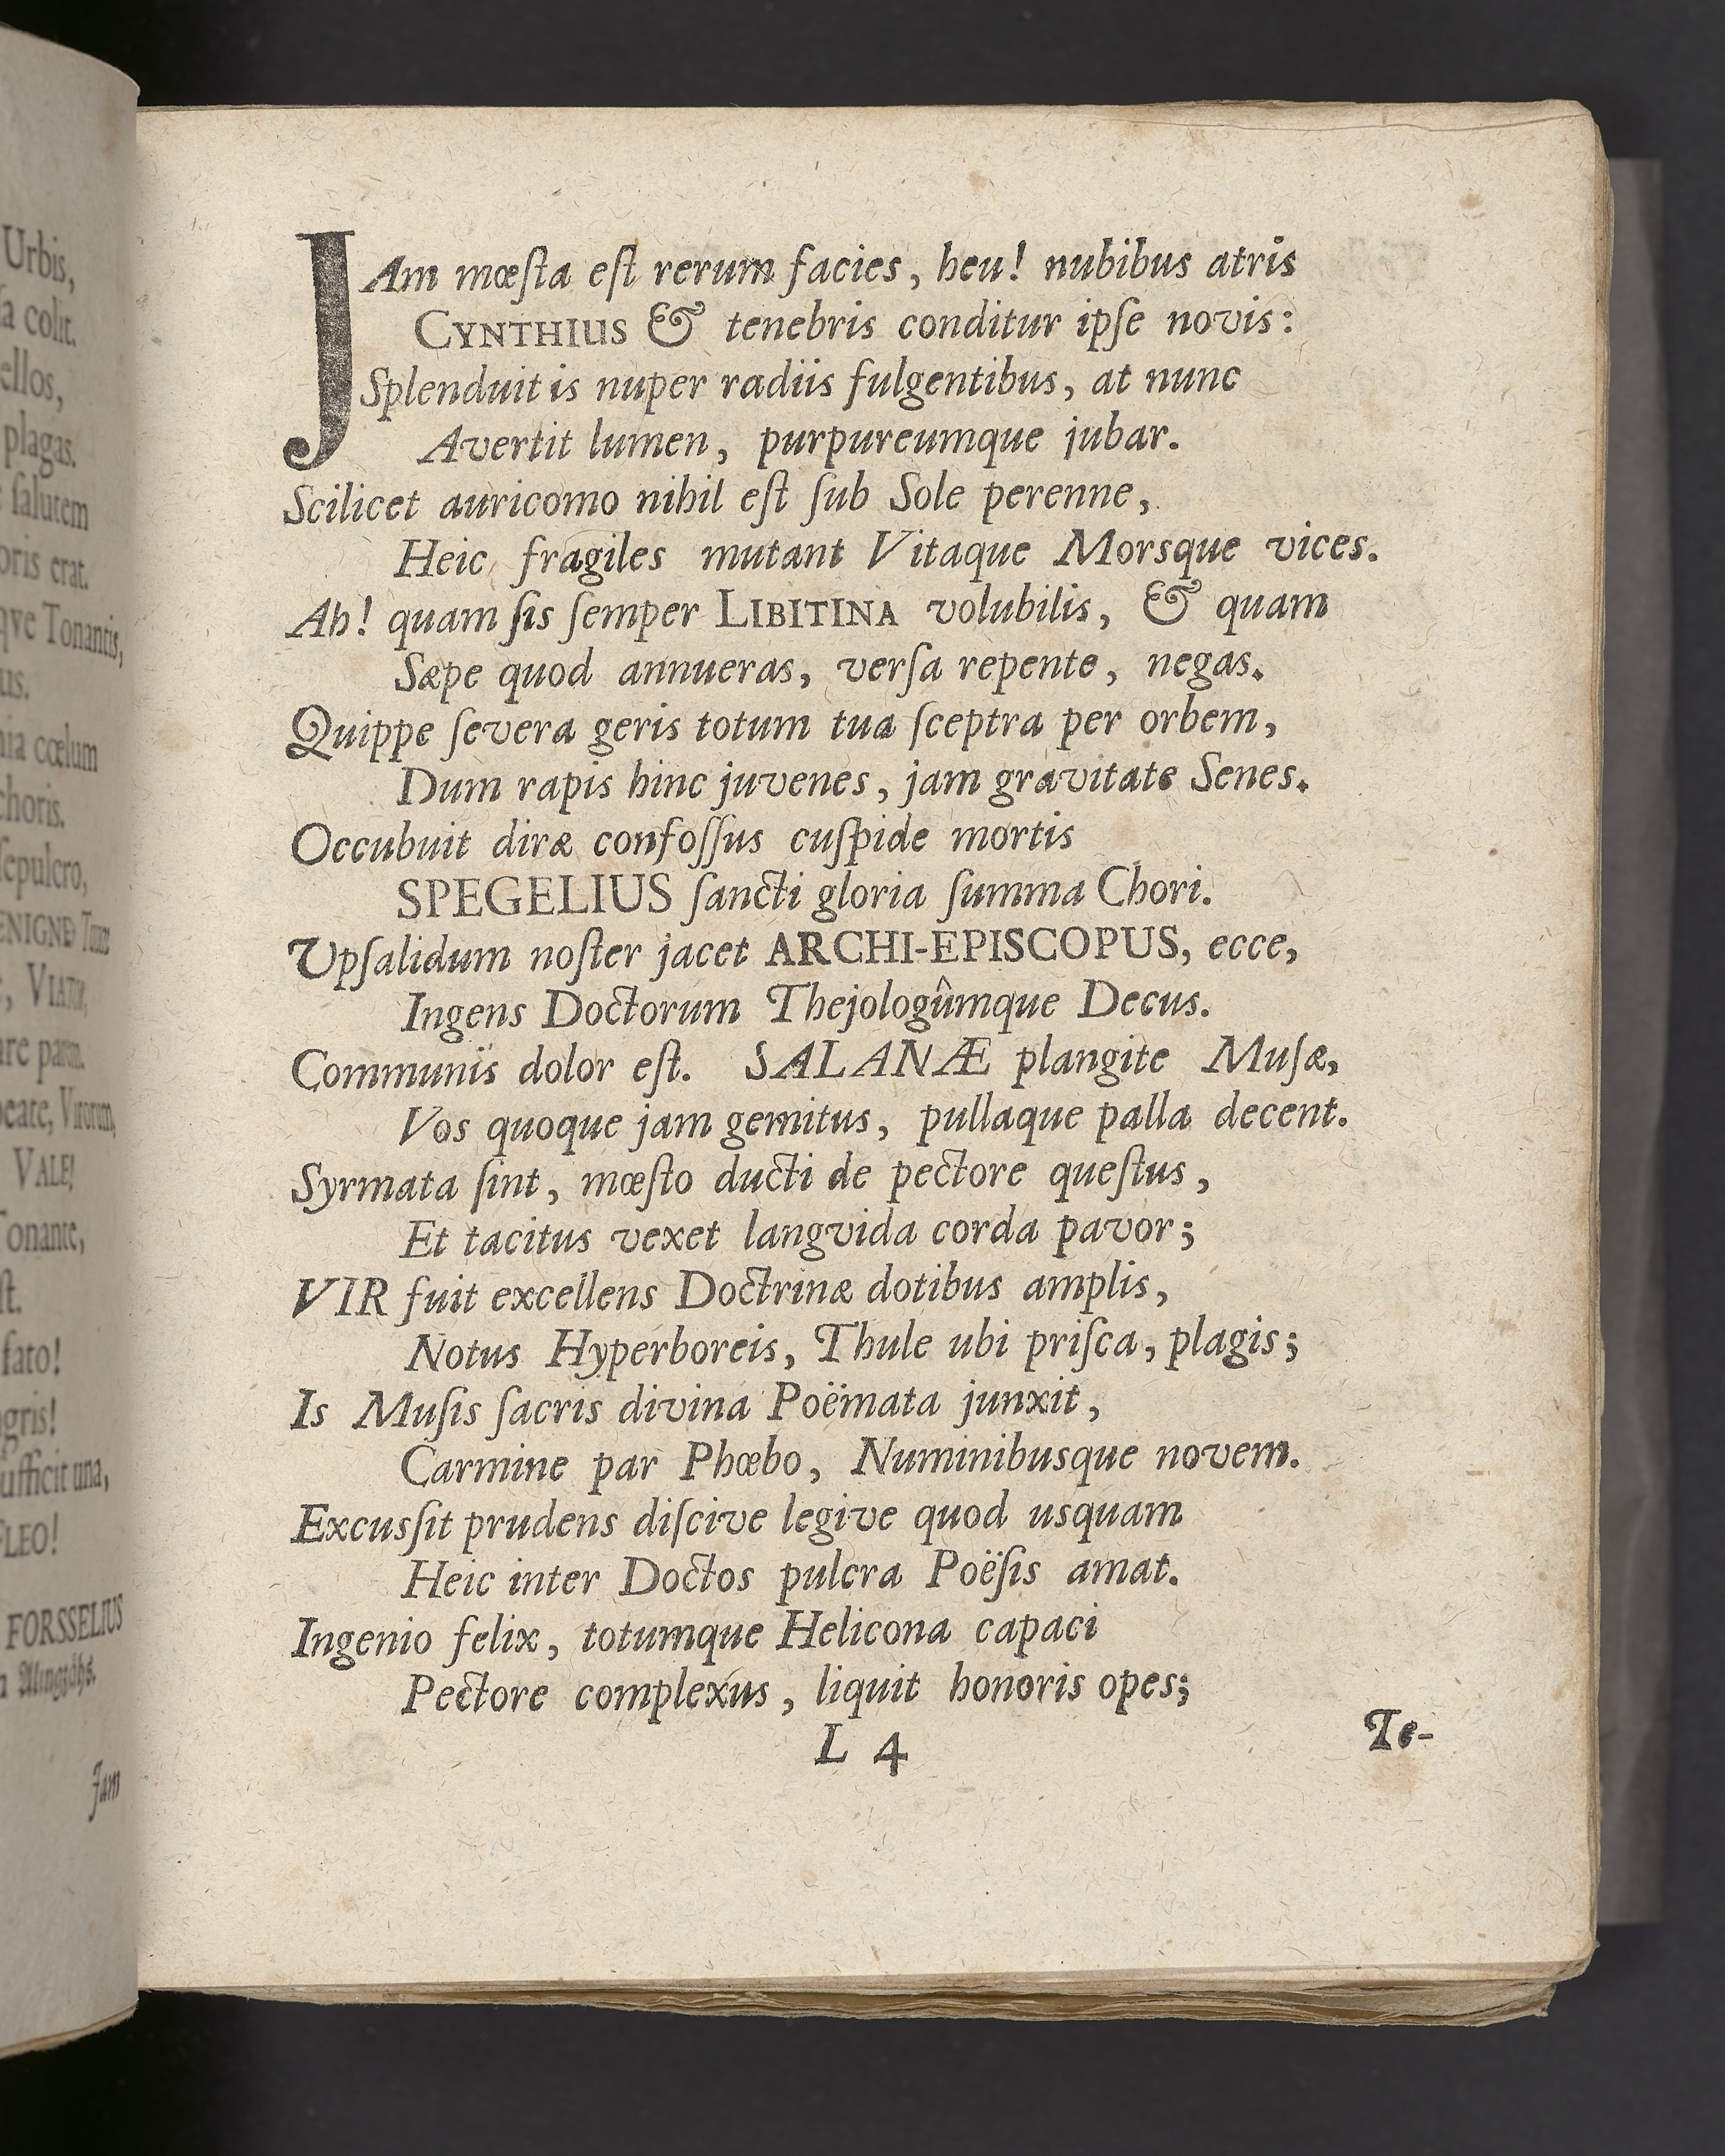 Urbis,
a colit.
ellos,
plagas.
salutem
oris erat.
qve Tonantis,
us.
nia cœlum
choris.
sepulcro,
VIATOR,
eate, Virorum,
VALE!
Tonante,
st.
fato!
agris!
ufficit una,
FLEO!
FORSSELIUS
Jam
JAm mœſta eſt rerum facies, heu! nubibus atris
CYNTHIUS & tenebris conditur ipſe novis:
Splenduit is nuper radiis fulgentibus, at nunc
Avertit lumen, purpureumque jubar.
Scilicet auricomo nihil eſt ſub Sole perenne,
Heic fragiles mutant Vitaque Morsque vices.
Ah! quam ſis ſemper LIBITINA volubilis, & quam
Sæpe quod annueras, verſa repente, negas.
Quippe ſevera geris totum tua ſceptra per orbem,
Dum rapis hinc juvenes, jam gravitate Senes.
Occubuit diræ confoſſus cuſpide mortis
SPEGELIUS ſancti gloria ſumma Chori.
Upſalidum noſter jacet ARCHI-EPISCOPUS, ecce,
Ingens Doctorum Thejologûmque Decus.
Communis dolor eſt. SALANÆ plangite Muſæ,
Vos quoque jam gemitus, pullaque palla decent.
Syrmata ſint, mœſto ducti de pectore queſtus,
Et tacitus vexet langvida corda pavor;
VIR fuit excellens Doctrinæ dotibus amplis,
Notus Hyperboreis, Thule ubi priſca, plagis;
Is Muſis ſacris divina Poëmata junxit,
Carmine par Phœbo, Numinibusque novem.
Excusſit prudens diſcive legive quod usquam
Heic inter Doctos pulcra Poëſis amat.
Ingenio felix, totumque Helicona capaci
Pectore complexus, liquit honoris opes;
L 4
Te-